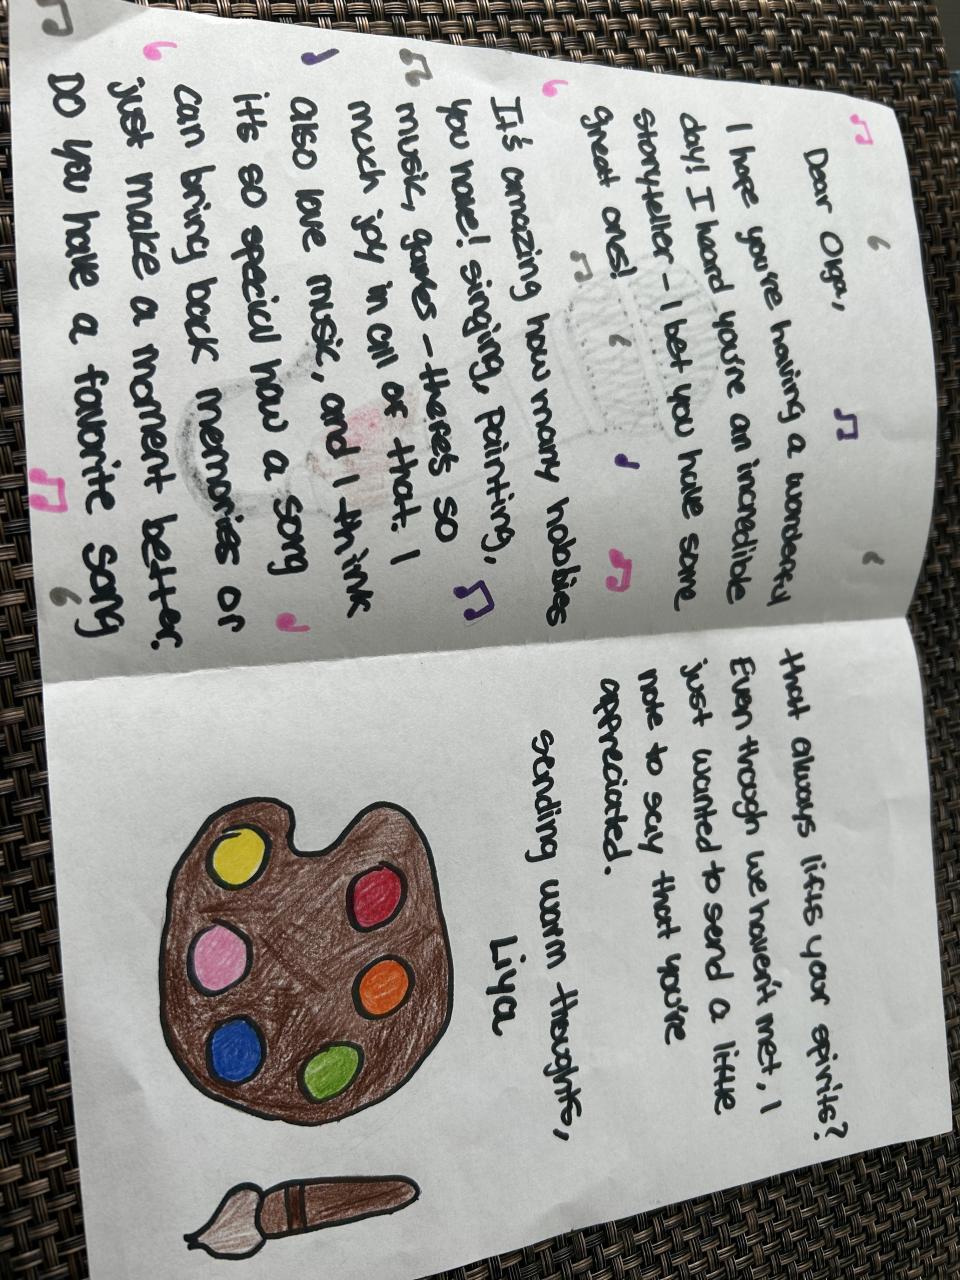 Dear Olga,
I hope you're having a wonderful
day! I heard you're an incredible
storyteller - I bet you have some
great ones!
It's amazing how many hobbies
you have! singing, painting,
music, games - there's so
much joy in all of that. I
also love music, and I think
it's so special how a song
can bring back memories or
just make a moment better.
DO you have a favorite song
that always lifts your spirits?
Even though we haven't met, I
just wanted to send a little
note to say that you're
appreciated.
sending warm thoughts,
Liya